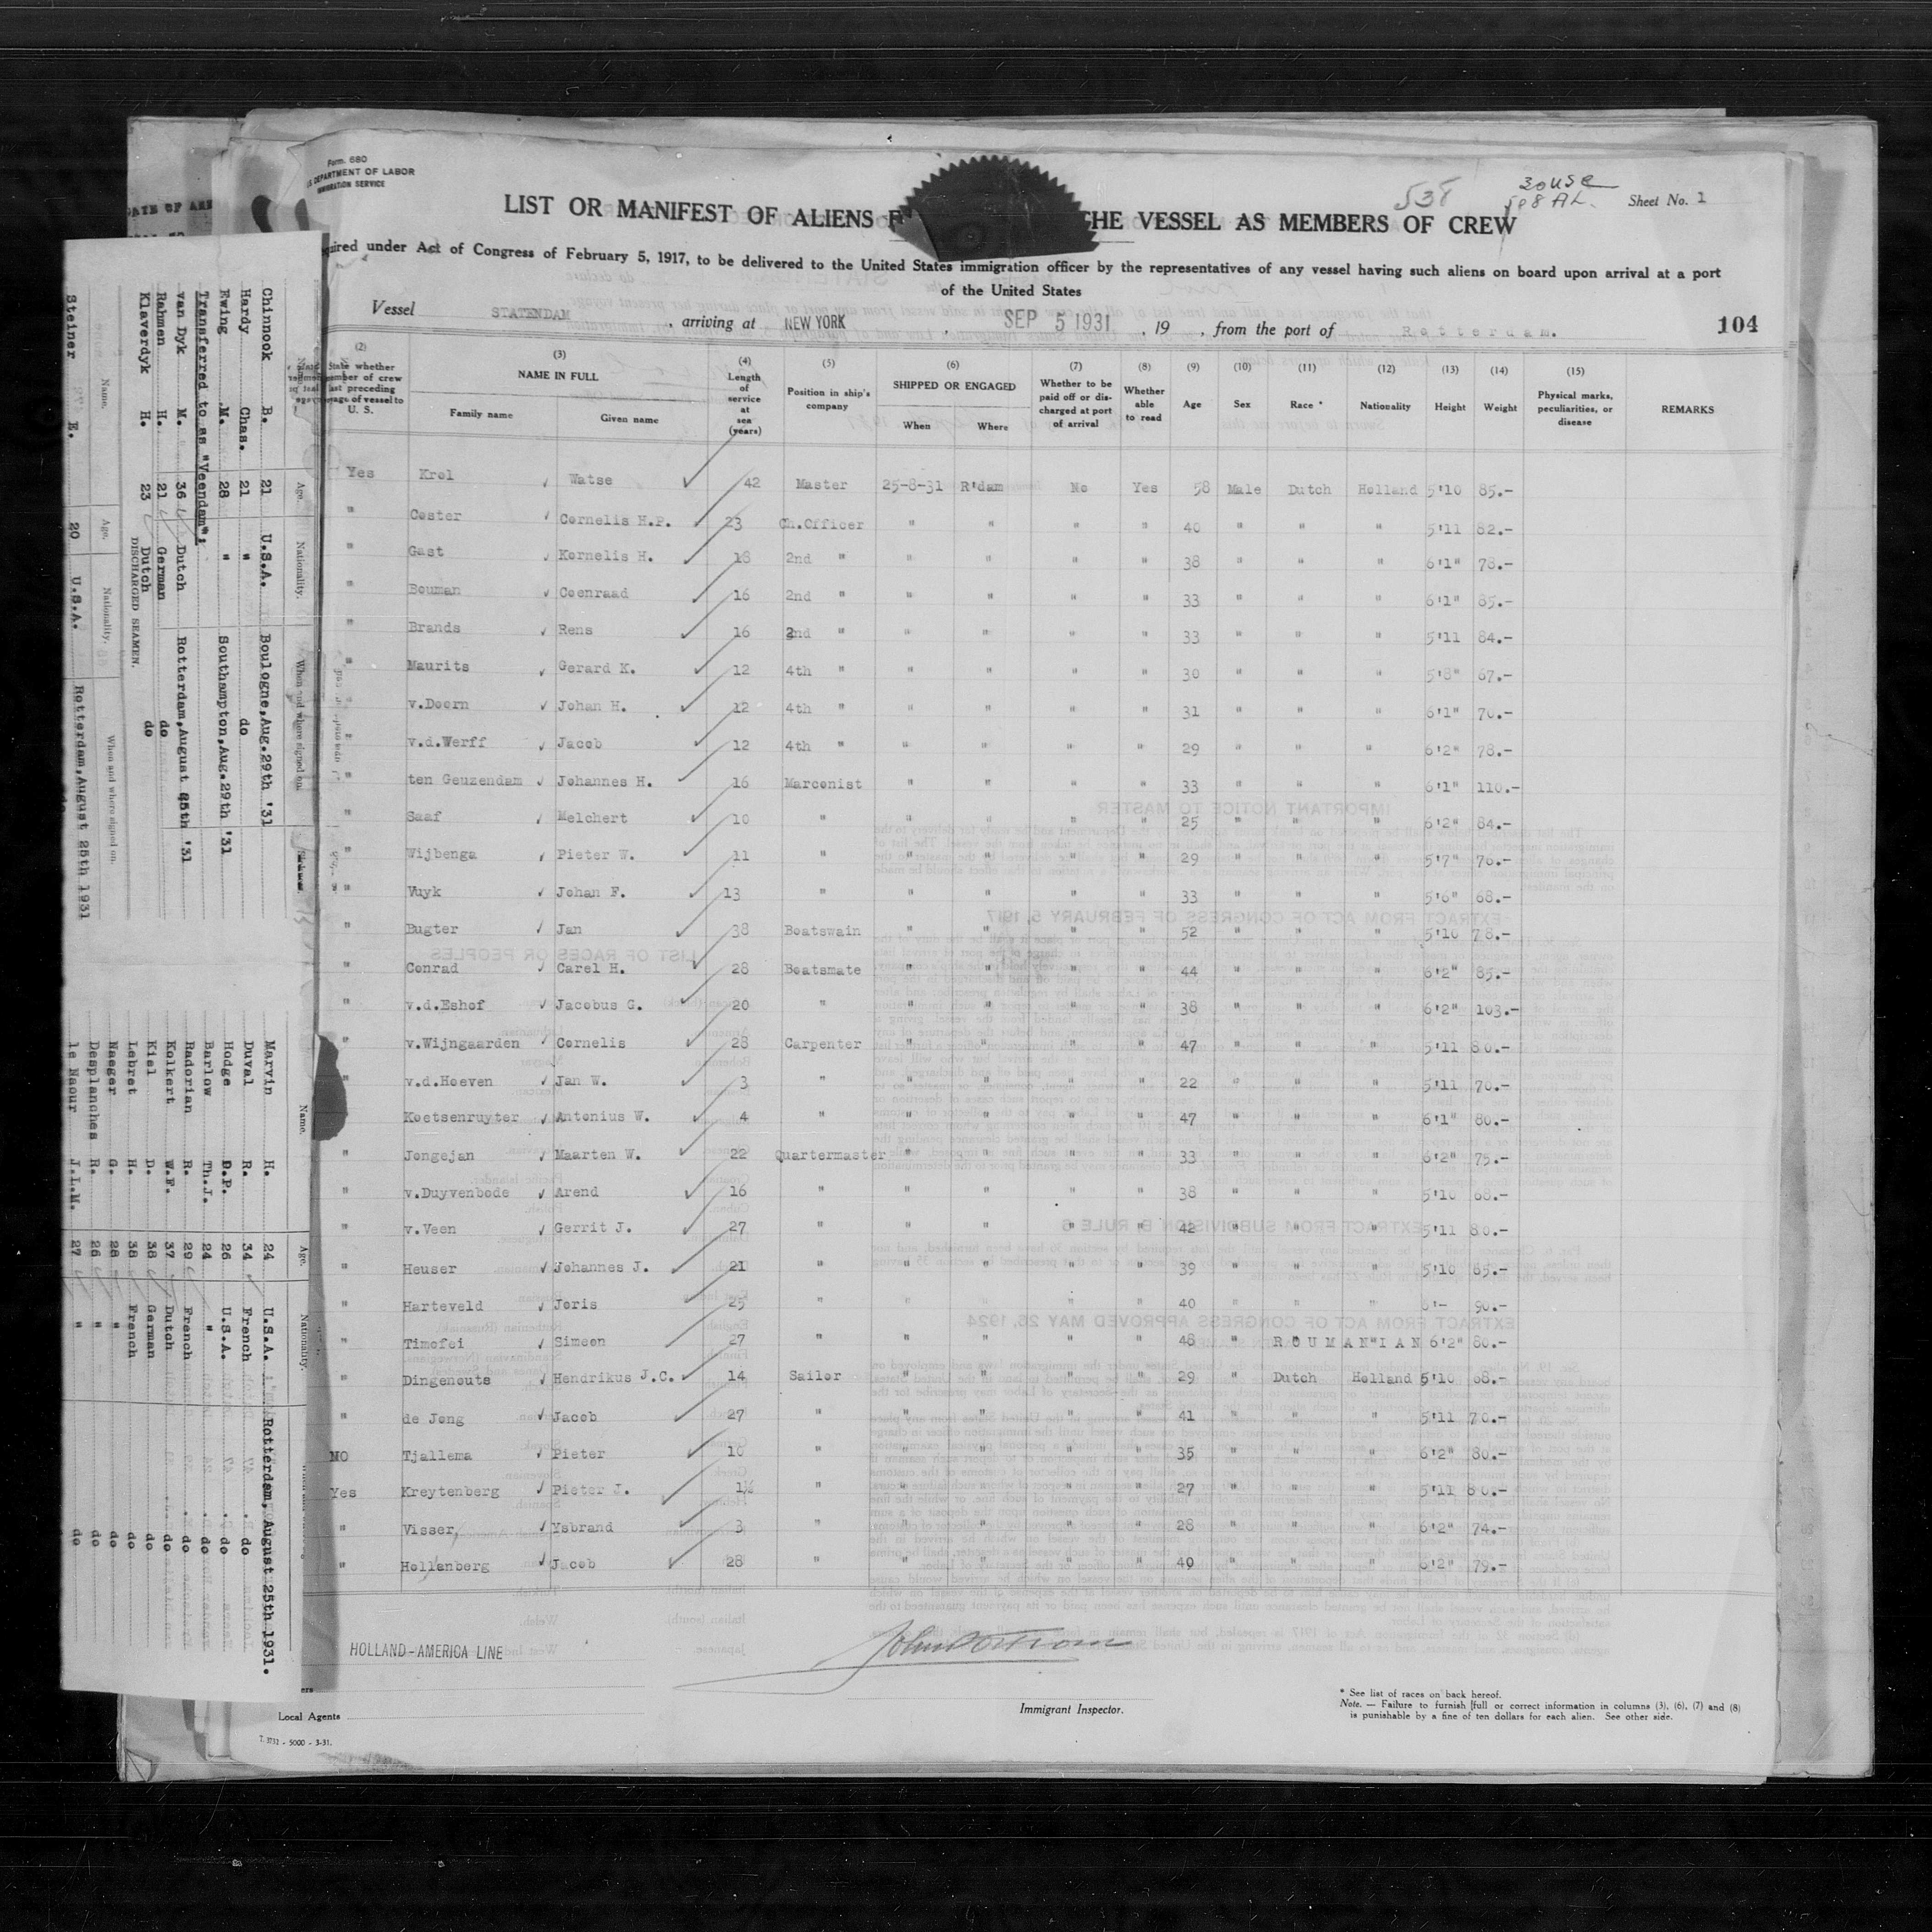 Form. 680
DEPARTMENT OF LABOR
IMMIGRATION SERVICE
538
30 USC
508 AL.
Sheet No. 1
LIST OR MANIFEST OF ALIENS THE VESSEL AS MEMBERS OF CREW
quired under Act of Congress of February 5, 1917, to be delivered to the United States immigration officer by the representatives of any vessel having such aliens on board upon arrival at a port
of the United States
Vessel STATENDAM, arriving at NEW YORK, SEP 5 1931, 19 , from the port of Rotterdam.
104
(2) State whether member of crew last preceding voyage of vessel to U. S.
(3) NAME IN FULL Family name Given name
(4) Length of service at sea (years)
(5) Position in ship's company
(6) SHIPPED OR ENGAGED When Where
(7) Whether to be paid off or discharged at port of arrival
(8) Whether able to read
(9) Age
(10) Sex
(11) Race *
(12) Nationality
(13) Height
(14) Weight
(15) Physical marks, peculiarities, or disease
REMARKS
Yes Krol Watse 42 Master 25-8-31 R'dam No Yes 58 Male Dutch Holland 5'10 85.-
" Coster Cornelis H.P. 23 Ch.Officer " " " " 40 " " " 5'11 82.-
" Gast Kornelis H. 18 2nd " " " " " 38 " " " 6'1" 78.-
" Bouman Coenraad 16 2nd " " " " " 33 " " " 6'1" 85.-
" Brands Rens 16 2nd " " " " " 33 " " " 5'11 84.-
" Maurits Gerard K. 12 4th " " " " " 30 " " " 5'8" 67.-
" v.Doorn Johan H. 12 4th " " " " " 31 " " " 6'1" 70.-
" v.d.Werff Jacob 12 4th " " " " " 29 " " " 6'2" 78.-
" ten Geuzendam Johannes H. 16 Marconist " " " " 33 " " " 6'1" 110.-
" Saaf Melchert 10 " " " " " 25 " " " 6'2" 84.-
" Wijbenga Pieter W. 11 " " " " " 29 " " " 5'7" 70.-
" Vuyk Johan F. 13 " " " " " 33 " " " 5'6" 68.-
" Bugter Jan 38 Boatswain " " " " 52 " " " 5'10 78.-
" Conrad Carel H. 28 Boatsmate " " " " 44 " " " 6'2" 85.-
" v.d.Eshof Jacobus G. 20 " " " " " 38 " " " 6'2" 103.-
" v.Wijngaarden Cornelis 28 Carpenter " " " " 47 " " " 5'11 80.-
" v.d.Hoeven Jan W. 3 " " " " " 22 " " " 5'11 70.-
Koetsenruyter Antonius W. 4 " " " " " 47 " " " 6'1" 80.-
" Jongejan Maarten W. 22 Quartermaster " " " " 33 " " " 6'2" 75.-
" v.Duyvenbode Arend 16 " " " " " 38 " " " 5'10 68.-
" v.Veen Gerrit J. 27 " " " " " 42 " " " 5'11 80.-
" Heuser Johannes J. 21 " " " " " 39 " " " 5'10 85.-
" Harteveld Joris 25 " " " " " 40 " " " 6'- 90.-
" Timofei Simeon 27 " " " " " 48 " ROUMANIAN 6'2" 80.-
" Dingenouts Hendrikus J.C. 14 Sailor " " " " 29 " Dutch Holland 5'10 68.-
" de Jong Jacob 27 " " " " " 41 " " " 5'11 70.-
NO Tjallema Pieter 10 " " " " " 35 " " " 6'2" 80.-
Yes Kreytenberg Pieter J. 1½ " " " " " 27 " " " 5'11 80.-
" Visser Ysbrand 3 " " " " " 28 " " " 6'2" 74.-
" Hollanberg Jacob 28 " " " " " 40 " " " 6'2" 79.-
HOLLAND-AMERICA LINE
Local Agents
Immigrant Inspector.
* See list of races on back hereof.
Note. — Failure to furnish full or correct information in columns (3), (6), (7) and (8)
is punishable by a fine of ten dollars for each alien. See other side.
T. 3732 - 5000 - 3-31.
Chinnook B. 21 U.S.A. Boulogne,Aug.29th '31
Hardy Chas. 21 " do
Ewing M. 28 " Southampton,Aug.29th '31
Transferred to as "Veendam":
van Dyk M. 36 Dutch Rotterdam,August 25th '31
Rahmen H. 21 German do
Klaverdyk H. 23 Dutch do
DISCHARGED SEAMEN.
Name. Age. Nationality. When and where signed on.
Steiner E. 20 U.S.A. Rotterdam,August 25th 1931
Name. Age. Nationality.
Marvin H. 24 U.S.A. Rotterdam, August 25th 1931.
Duval R. 34 French do
Hodge D.P. 26 U.S.A. do
Barlow Th.J. 24 " do
Radorian R. 29 French do
Kolkert W.F. 37 Dutch do
Kiel D. 38 German do
Lebret H. 38 French do
Naeger G. 28 " do
Desplanches R. 26 " do
le Naour J.L.M. 27 " do